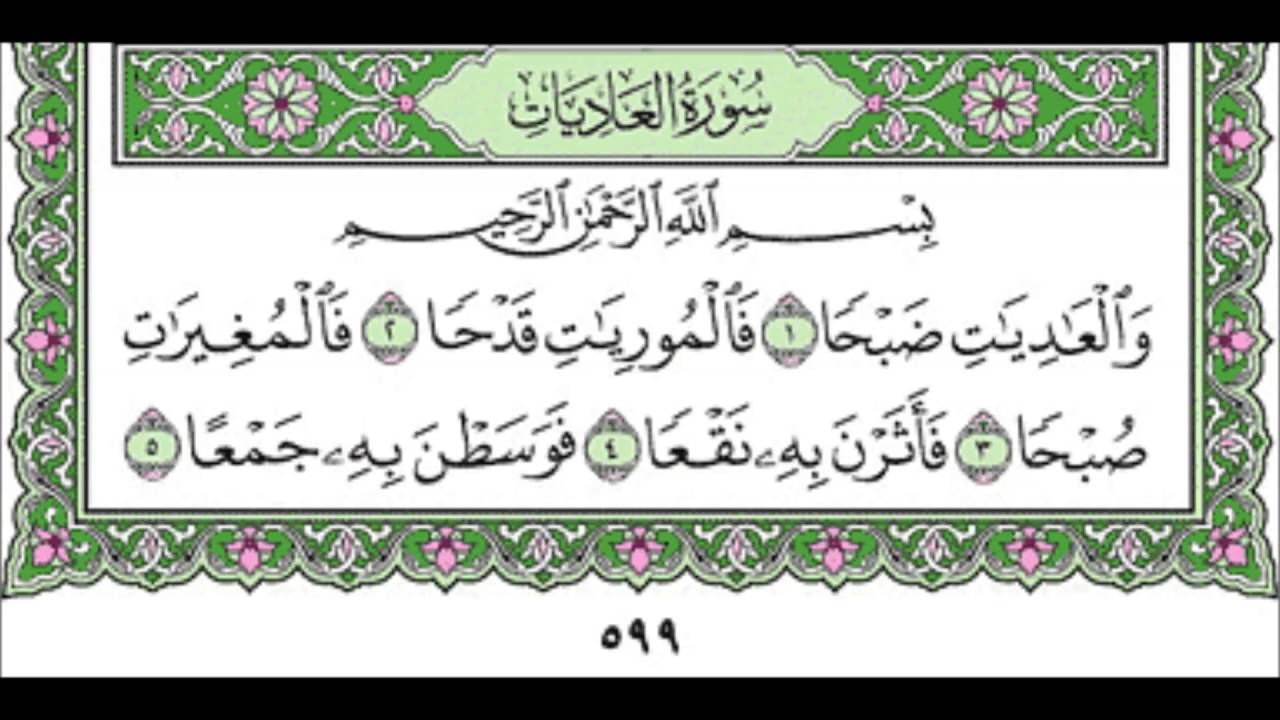 سُورَةُ العَادِيَاتِ
بِسْمِ ٱللَّهِ ٱلرَّحْمَٰنِ ٱلرَّحِيمِ
وَٱلْعَٰدِيَٰتِ ضَبْحًا ١ فَٱلْمُورِيَٰتِ قَدْحًا ٢ فَٱلْمُغِيرَٰتِ
صُبْحًا ٣ فَأَثَرْنَ بِهِۦ نَقْعًا ٤ فَوَسَطْنَ بِهِۦ جَمْعًا ٥
٥٩٩